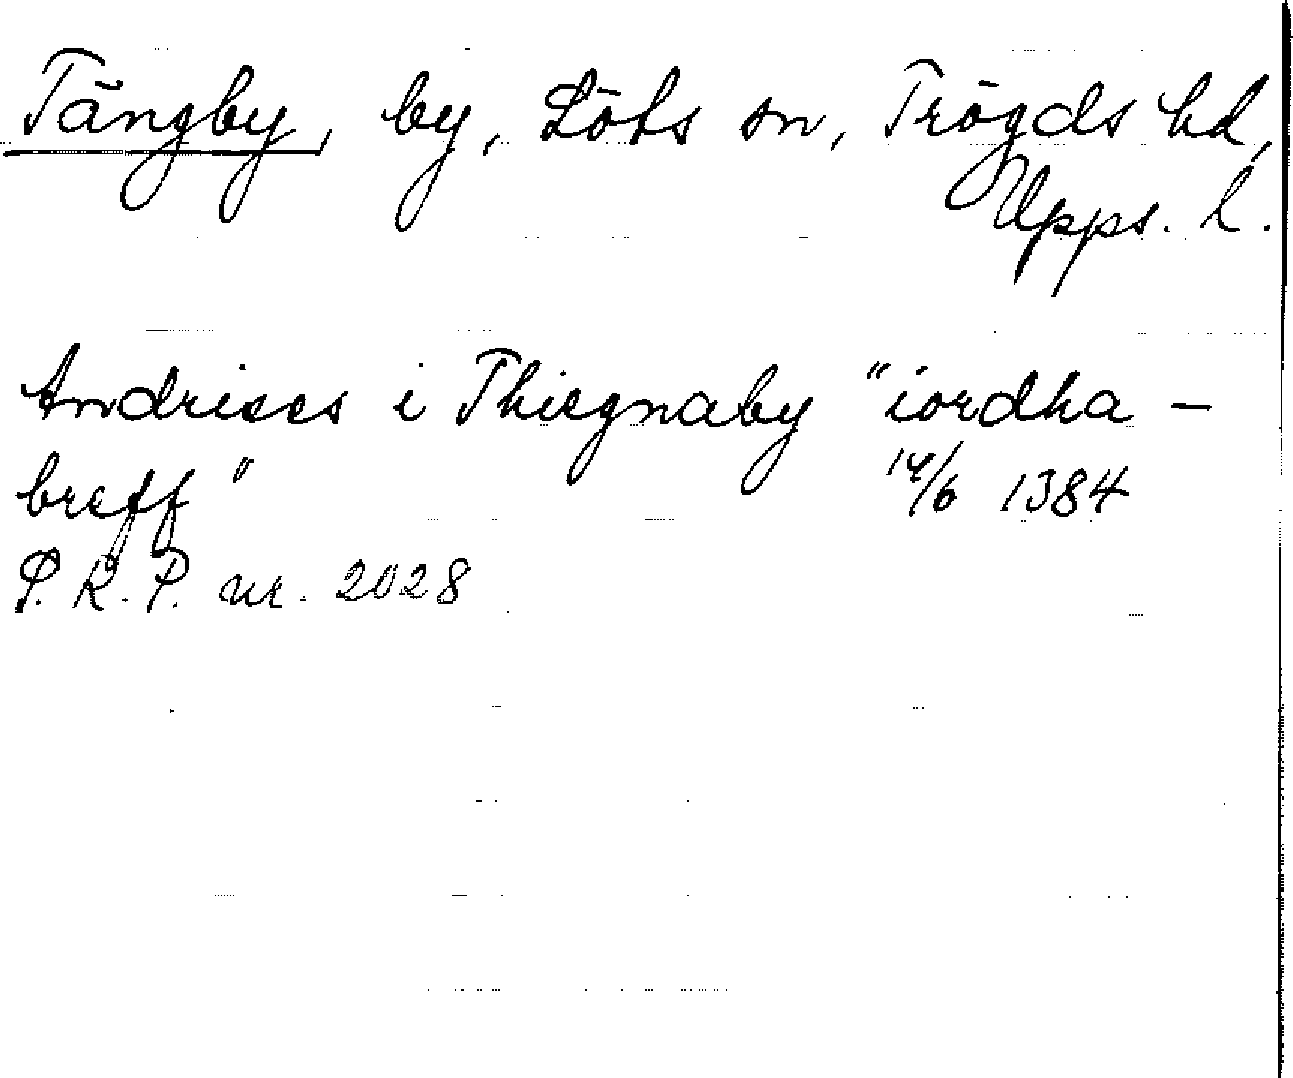 Tängby, by, Löts sn, Trögds hd,
Upps. l.
Andrises i Thiegnaby "iordha -
breff" 14/6 1384
P. R. P. nr. 2028